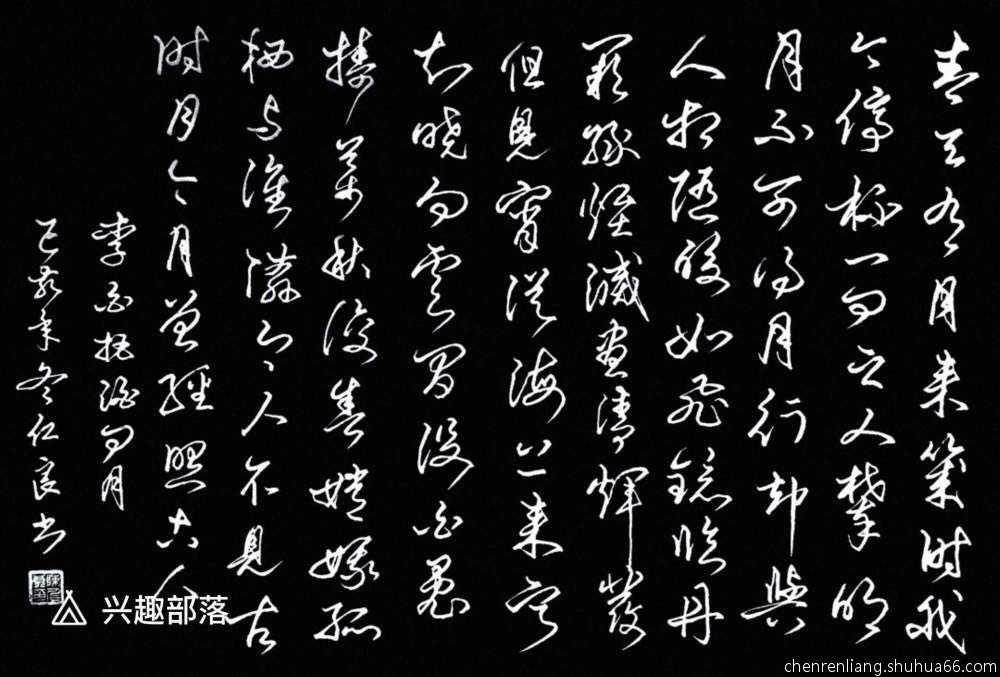 青天有月来幾时我
今停杯一问之人攀明
月不可得月行却與
人相随皎如飛鏡临丹
阙綠烟滅盡清輝發
但見宵從海上来寧
知曉向雲間没白兔
擣藥秋復春嫦娥孤
栖与誰鄰今人不見古
时月今月曾經照古人
李白把酒问月
己亥年冬仁良书
兴趣部落
chenrenliang.shuhua66.com